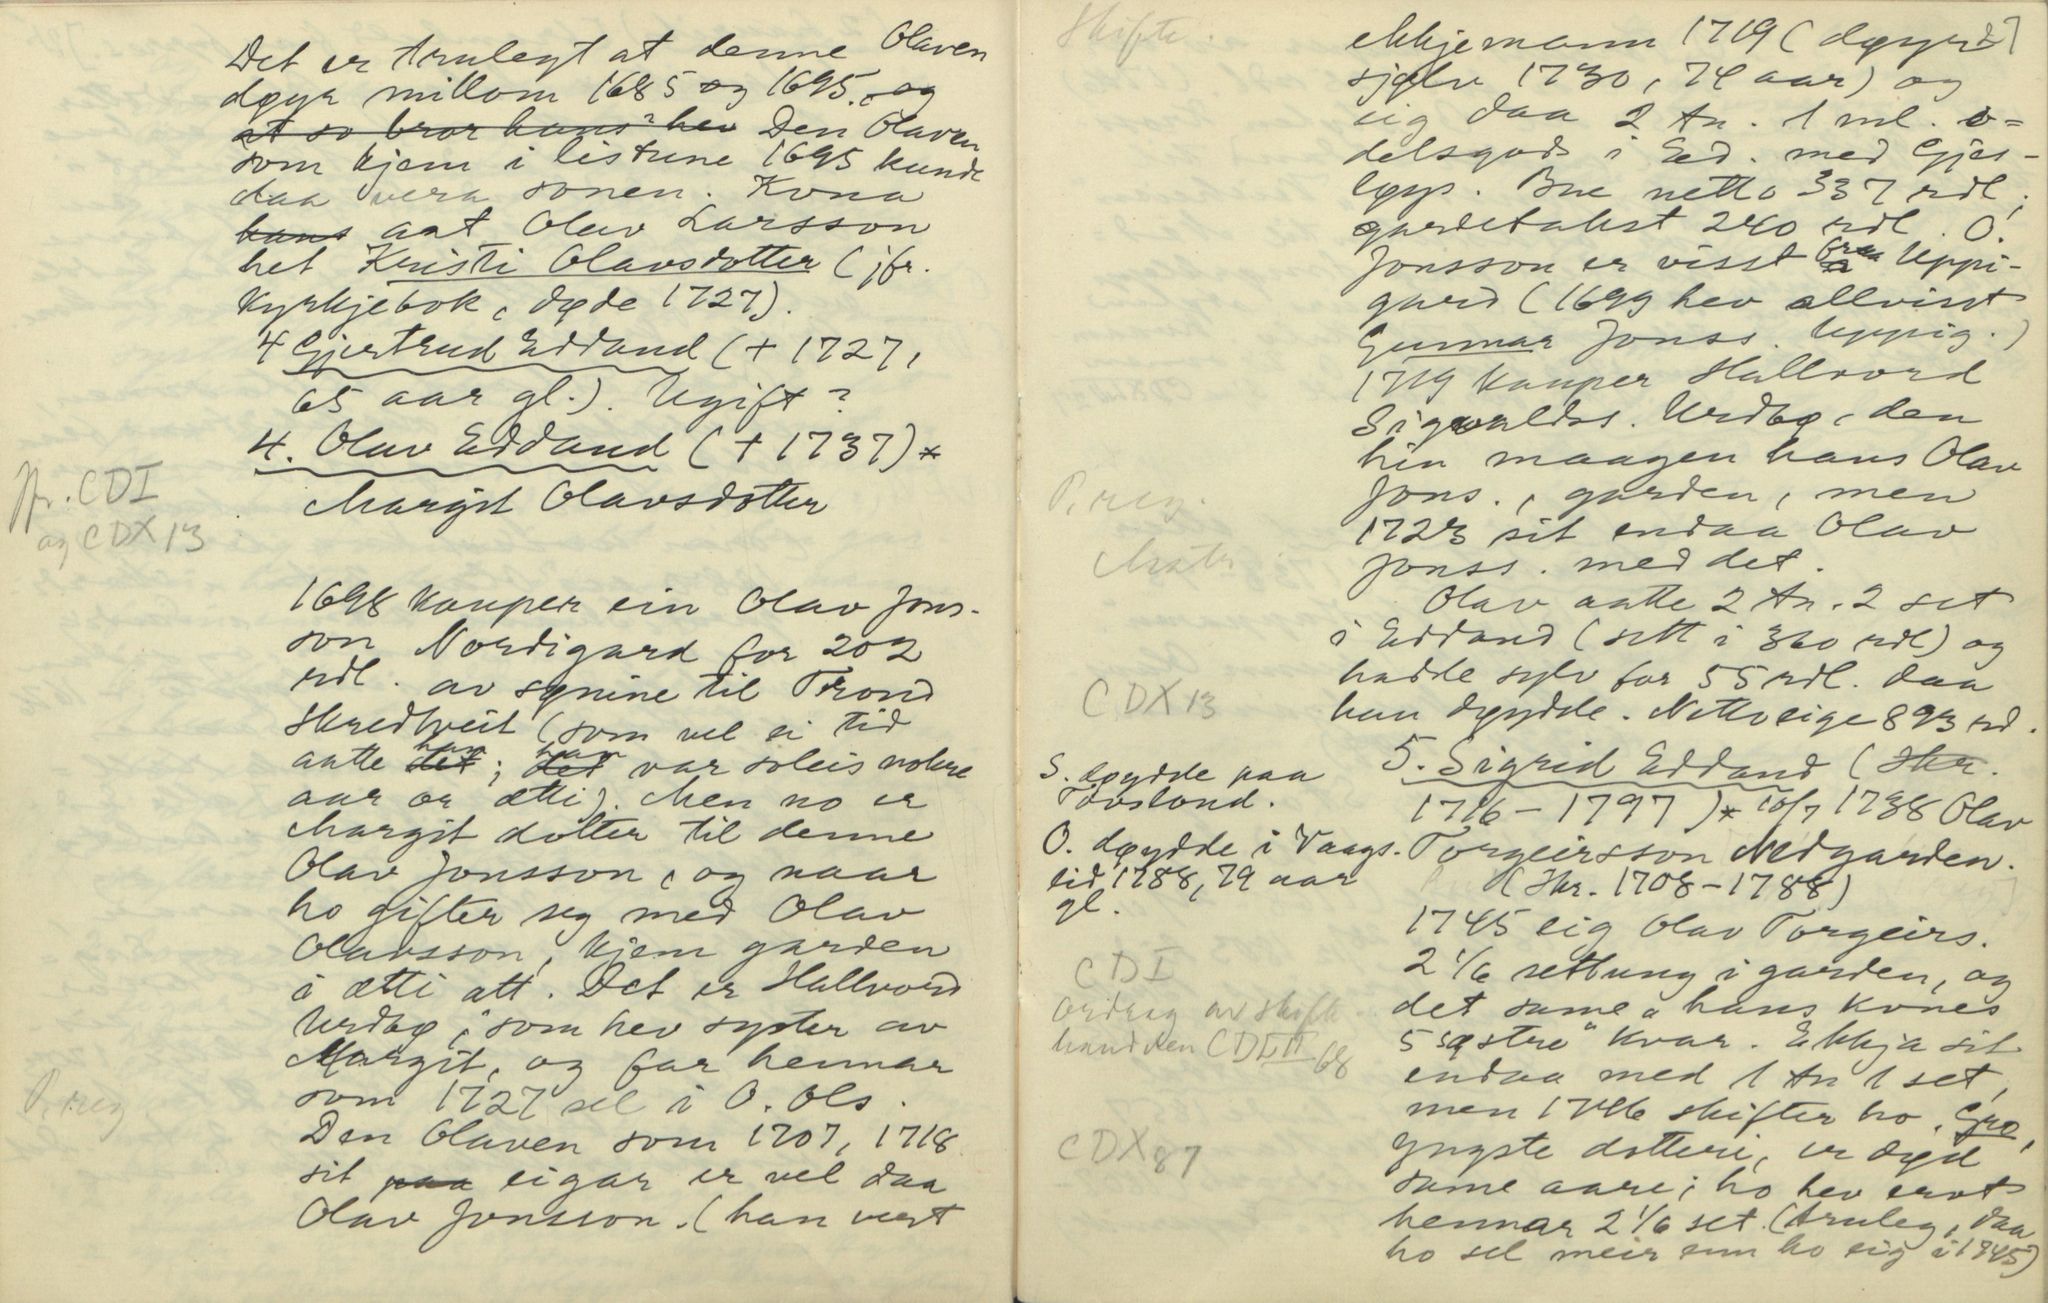 Det er trulegt at denne Olaven
døyr millom 1685 og 1695, og
at so bror hans? hev Den Olaven
som kjem i listune 1695 kunde
daa vera sonen. Kona
hans aat Olav Larsson
het Kristi Olavsdotter (jfr.
Kyrkjebok, døde 1727).
4 Gjertrud Eddand (+ 1727,
65 aar gl.). Ugift?
4. Olav Eddand (+ 1737) *
Jfr. CDI
og CDX 13
Margit Olavsdotter
1698 kauper ein Olav Jons-
son Nordigard for 202
rdl. av synine til Trond
Skredtveit (som vel ei tid
aatte det han; det han var soleis nokre
aar or ætti). Men no er
Margit dotter til denne
Olav Jonsson, og naar
ho gifter seg med Olav
Olavsson, kjem garden
i ætti att. Det er Hallvord
Urdbø, som hev syster av
Margit, og far hennar
som 1727 sel i O. Ols.
P. reg
Den Olaven som 1707, 1718
sit paa eigar er vel daa
Olav Jonsson. (han vert
Skifte.
ekkjemann 1719 (døyr
sjølv 1730, 74 aar) og
eig daa 2 tn. 1 ml. o-
delsgods i Ed. med Gjes-
løys. Bue netto 337 rdl;
gardetakst 240 rdl. O.
Jonsson er visst fraa Uppi-
gard (1699 hev allvisst
Gunnar Jonss. Uppig.)
1719 kauper Hallvord
Sigvalds. Urdbø, den
hin maagen hans Olav
P. reg.
Jons., garden, men
1723 sit endaa Olav
Matr
Jonss. med det.
Olav aatte 2 tn. 2 set
i Eddand (sett i 360 rdl) og
hadde sylv for 55 rdl. daa
CDX 13
han døydde. Netto eige 893 rd.
5. Sigrid Eddand (Skr.
1716 - 1797) * 10/7 1738 Olav
S. døydde paa
Tovsland.
O. døydde i Vaags-
lid, 1788, 79 aar
gl.
Torgeirsson Nedgarden.
(Skr. 1708 - 1788)
1745 eig Olav Torgeirs.
2 1/6 settung i garden, og
CDI
det same " hans kones
ordrag av skifte
5 systre" kvar. Ekkja sit
handden CDLII 68
endaa med 1 tn 1 set,
men 1746 skifter ho. Gro,
CDX 87
yngste dotteri, er død
same aare; ho hev ervt
hennar 2 1/6 set. (truleg, daa
ho sel meir enn ho eig i 1745)